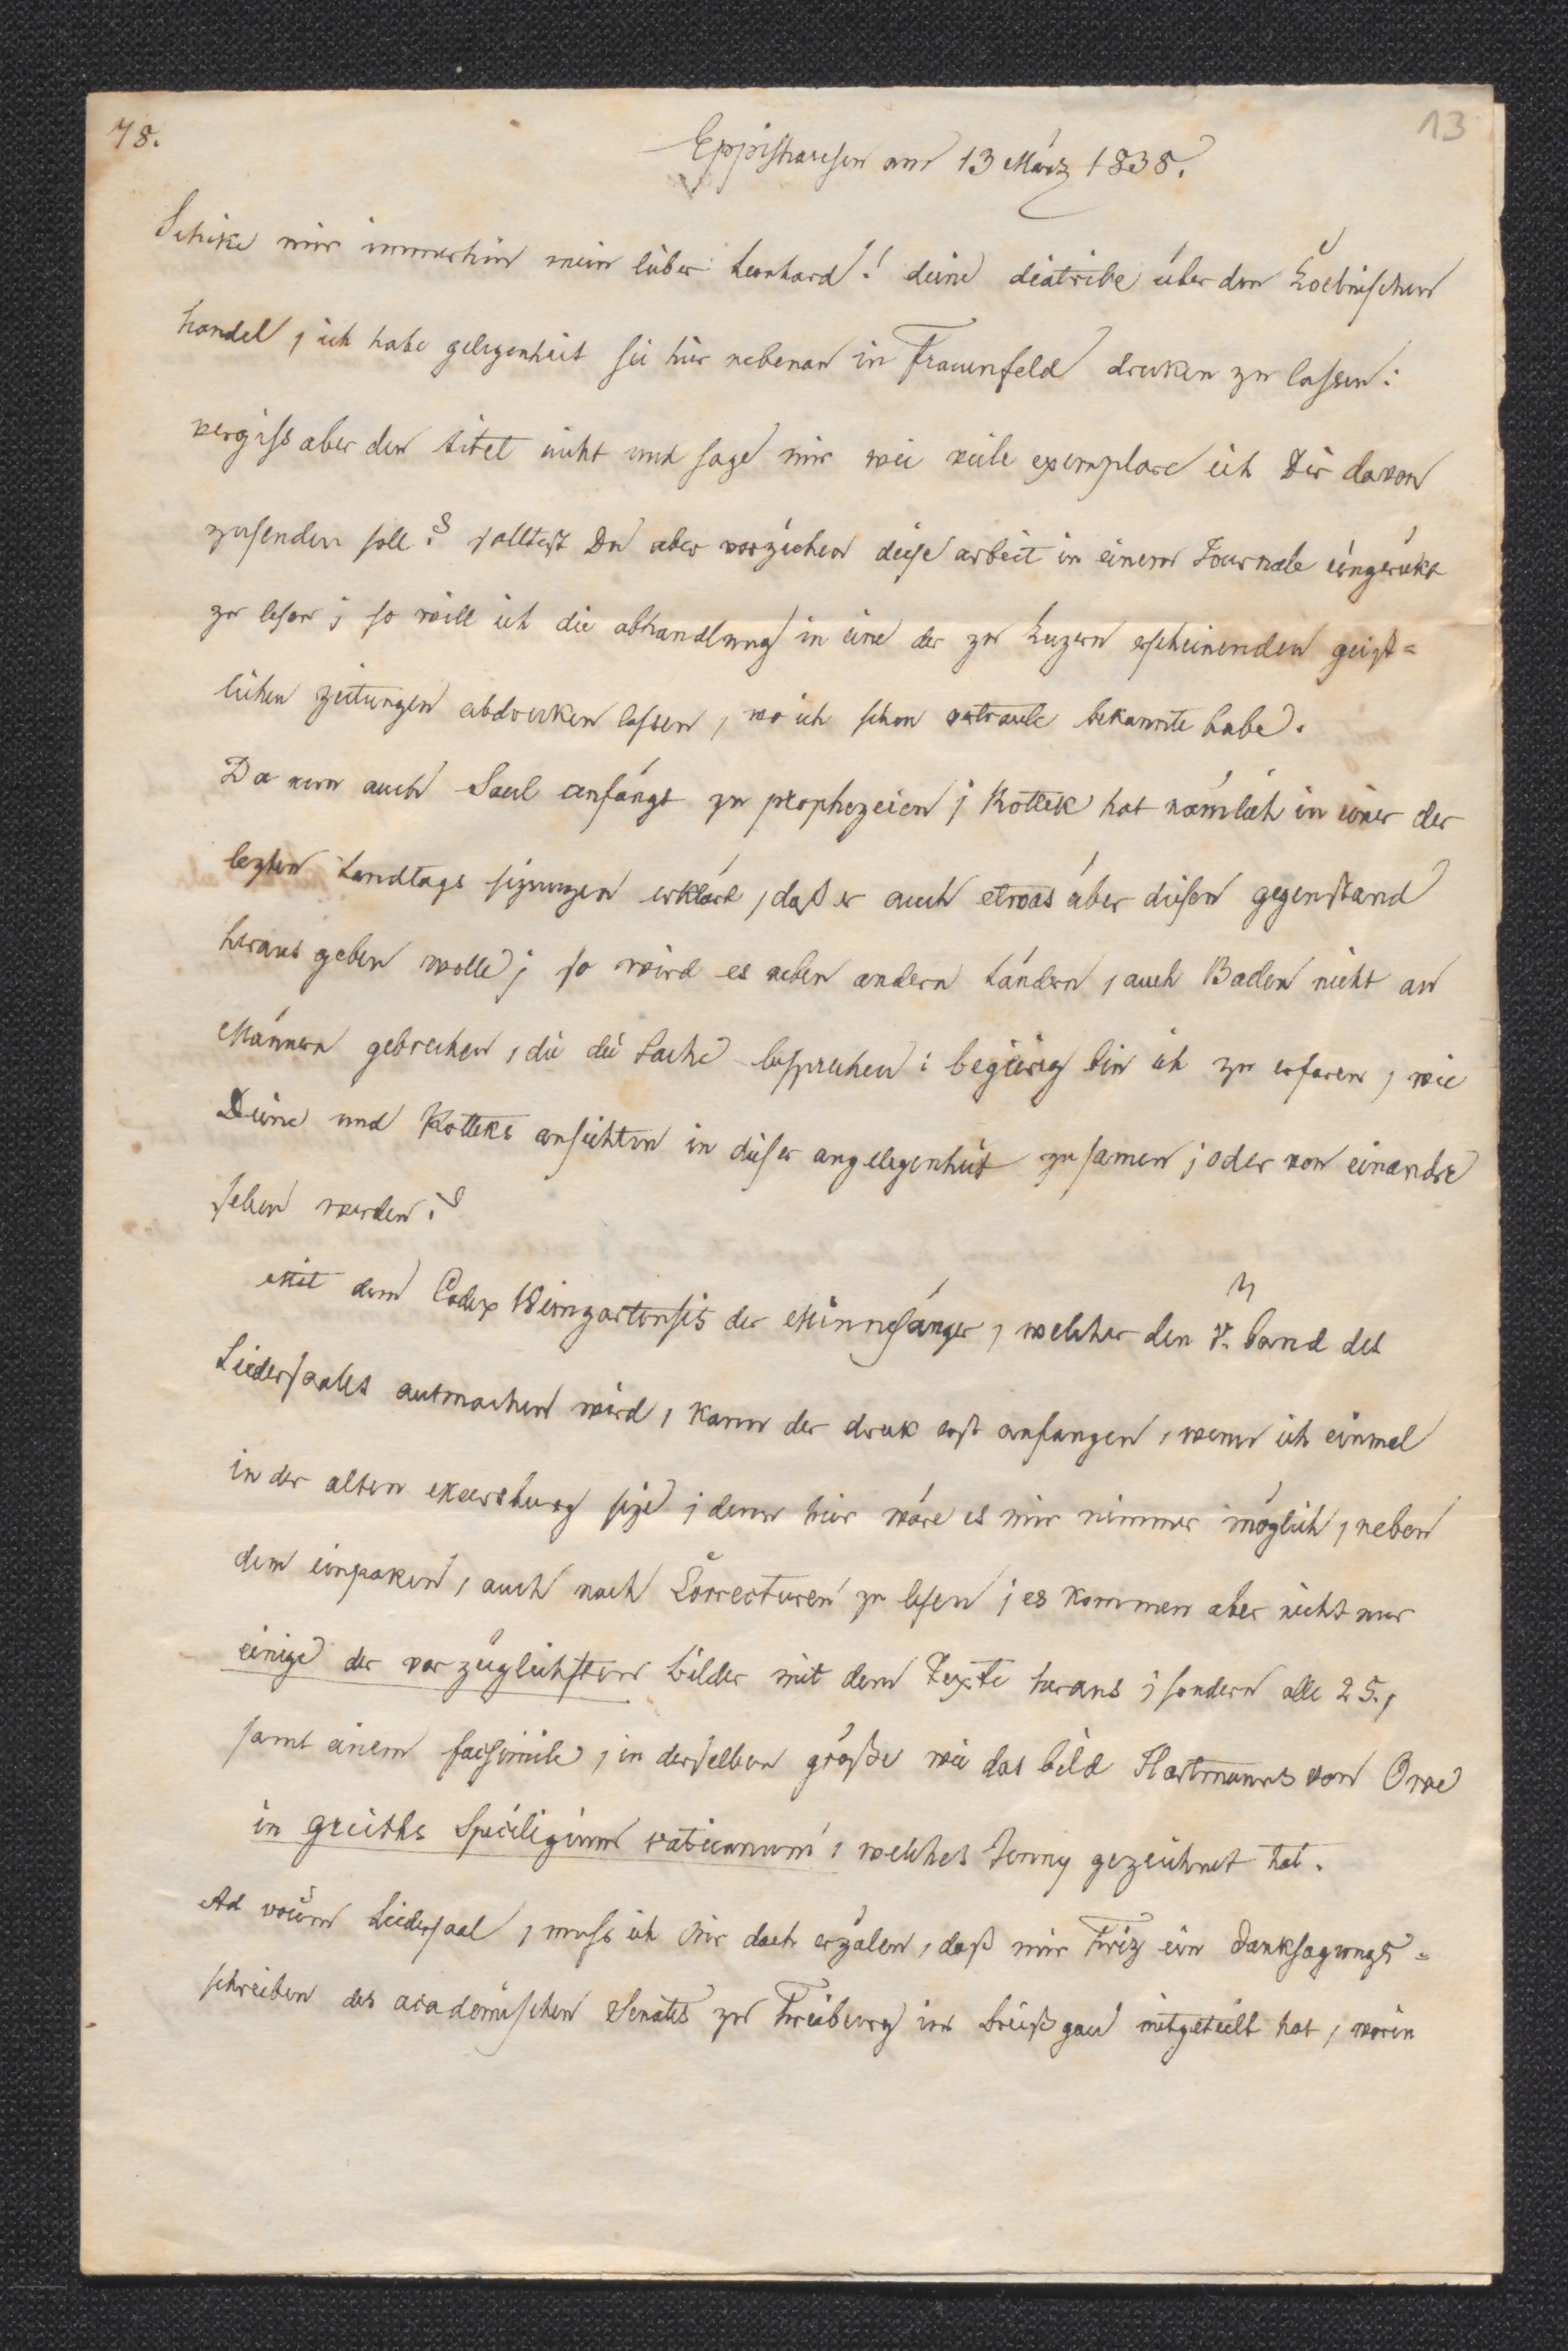 78.
13
Eppishausen am 13 März 1838.
Schike mir immerhin mein lieber Leonhard! deine diatribe über den Coelnischen
handel, ich habe gelegenheit sie hier nebenan in Frauenfeld druken zu lassen:
vergiss aber den titel nicht und sage mir wie viele exemplare ich Dir davon
zusenden soll? solltest Du aber vorziehen diese arbeit in einem Journale eingerükt
zu lesen; so will ich die abhandlung in eine der zu Luzern erscheinenden geist=
lichen zeitungen abdruken lassen, wo ich schon vertraute bekannte habe.
Da nun auch Saul anfängt zu prophezeien; Rottek hat nämlich in einer der
lezten Landtags sizungen erklärt, daß er auch etwas über diesen gegenstand
heraus geben wolle; so wird es neben andern Ländern, auch Baden nicht an
Männern gebrechen, die die Sache besprechen: begierig bin ich zu erfaren, wie
Deine und Rotteks ansichten in dieser angelegenheit zusamen; oder von einander
sehen werden?
Mit dem Codex Weingartensis der Minnesänger, welcher den V. band des
Liedersaales ausmachen wird, kann der druk erst anfangen, wenn ich einmal
in der alten Meersburg size; denn hier wäre es mir nimmer möglich, neben
dem einpaken, auch noch Correcturen zu lesen; es kommen aber nicht nur
einige der vorzüglichsten bilder mit dem Texte heraus; sondern alle 25.,
samt einem facsimile, in derselben größe wie das bild Hartmanns von Owe
in greiths Spicilegium vaticanum, welches Jenny gezeichnet hat.
Ad vocem Liedersaal, muss ich Dir doch erzälen, daß mir Friz ein Danksagungs=
schreiben des academischen Senates zu Freiburg im Breißgau mitgeteilt hat, worin